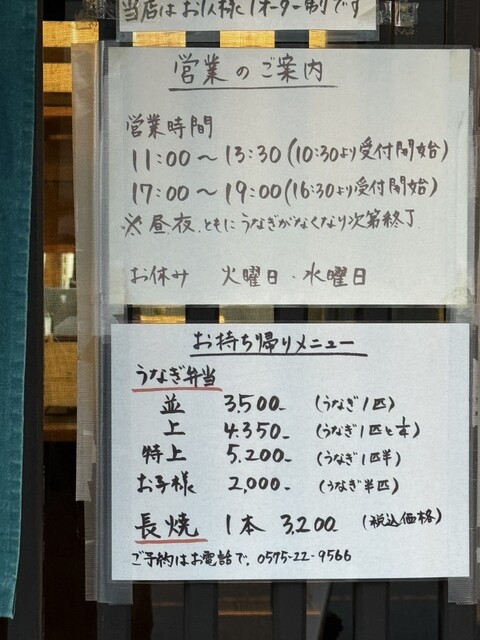 当店はお1人様1オーダー制です
営業のご案内
営業時間
11:00～13:30(10:30より受付開始)
17:00～19:00(16:30より受付開始)
※昼、夜、ともにうなぎがなくなり次第終了
お休み 火曜日・水曜日
お持ち帰りメニュー
うなぎ弁当
並 3,500- (うなぎ1匹)
上 4,350- (うなぎ1匹と1/4)
特上 5,200- (うなぎ1匹半)
お子様 2,000- (うなぎ半匹)
長焼 1本 3,200 (税込価格)
ご予約はお電話で、0575-22-9566